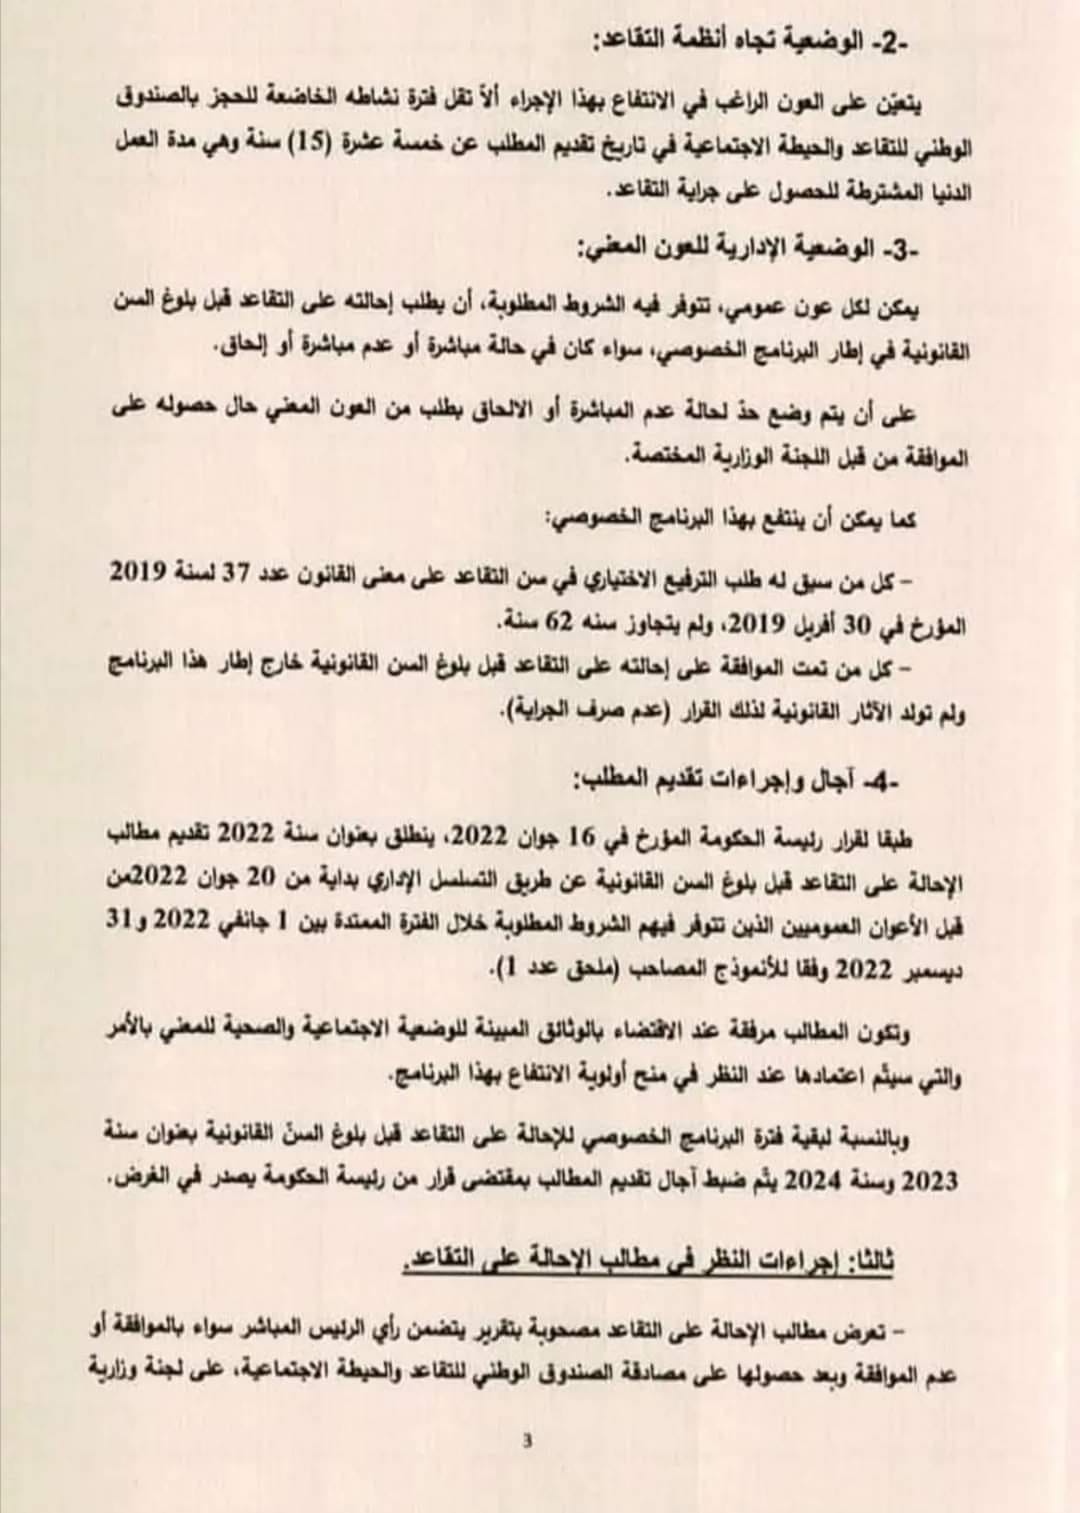 -2- الوضعية تجاه أنظمة التقاعد:
يتعيّن على العون الراغب في الانتفاع بهذا الإجراء ألاّ تقل فترة نشاطه الخاضعة للحجز بالصندوق
الوطني للتقاعد والحيطة الاجتماعية في تاريخ تقديم المطلب عن خمسة عشرة (15) سنة وهي مدة العمل
الدنيا المشترطة للحصول على جراية التقاعد.
-3- الوضعية الإدارية للعون المعني:
يمكن لكل عون عمومي، تتوفر فيه الشروط المطلوبة، أن يطلب إحالته على التقاعد قبل بلوغ السن
القانونية في إطار البرنامج الخصوصي، سواء كان في حالة مباشرة أو عدم مباشرة أو إلحاق.
على أن يتم وضع حدّ لحالة عدم المباشرة أو الالحاق بطلب من العون المعني حال حصوله على
الموافقة من قبل اللجنة الوزارية المختصة.
كما يمكن أن ينتفع بهذا البرنامج الخصوصي:
- كل من سبق له طلب الترفيع الاختياري في سن التقاعد على معنى القانون عدد 37 لسنة 2019
المؤرخ في 30 أفريل 2019، ولم يتجاوز سنه 62 سنة.
- كل من تمت الموافقة على إحالته على التقاعد قبل بلوغ السن القانونية خارج إطار هذا البرنامج
ولم تولد الآثار القانونية لذلك القرار (عدم صرف الجراية).
-4- آجال وإجراءات تقديم المطلب:
طبقا لقرار رئيسة الحكومة المؤرخ في 16 جوان 2022، ينطلق بعنوان سنة 2022 تقديم مطالب
الإحالة على التقاعد قبل بلوغ السن القانونية عن طريق التسلسل الإداري بداية من 20 جوان 2022من
قبل الأعوان العموميين الذين تتوفر فيهم الشروط المطلوبة خلال الفترة الممتدة بين 1 جانفي 2022 و31
ديسمبر 2022 وفقا للأنموذج المصاحب (ملحق عدد 1).
وتكون المطالب مرفقة عند الاقتضاء بالوثائق المبينة للوضعية الاجتماعية والصحية للمعني بالأمر
والتي سيتّم اعتمادها عند النظر في منح أولوية الانتفاع بهذا البرنامج.
وبالنسبة لبقية فترة البرنامج الخصوصي للإحالة على التقاعد قبل بلوغ السنّ القانونية بعنوان سنة
2023 وسنة 2024 يتّم ضبط آجال تقديم المطالب بمقتضى قرار من رئيسة الحكومة يصدر في الغرض.
ثالثا: إجراءات النظر في مطالب الإحالة على التقاعد.
- تعرض مطالب الإحالة على التقاعد مصحوبة بتقرير يتضمن رأي الرئيس المباشر سواء بالموافقة أو
عدم الموافقة وبعد حصولها على مصادقة الصندوق الوطني للتقاعد والحيطة الاجتماعية، على لجنة وزارية
3